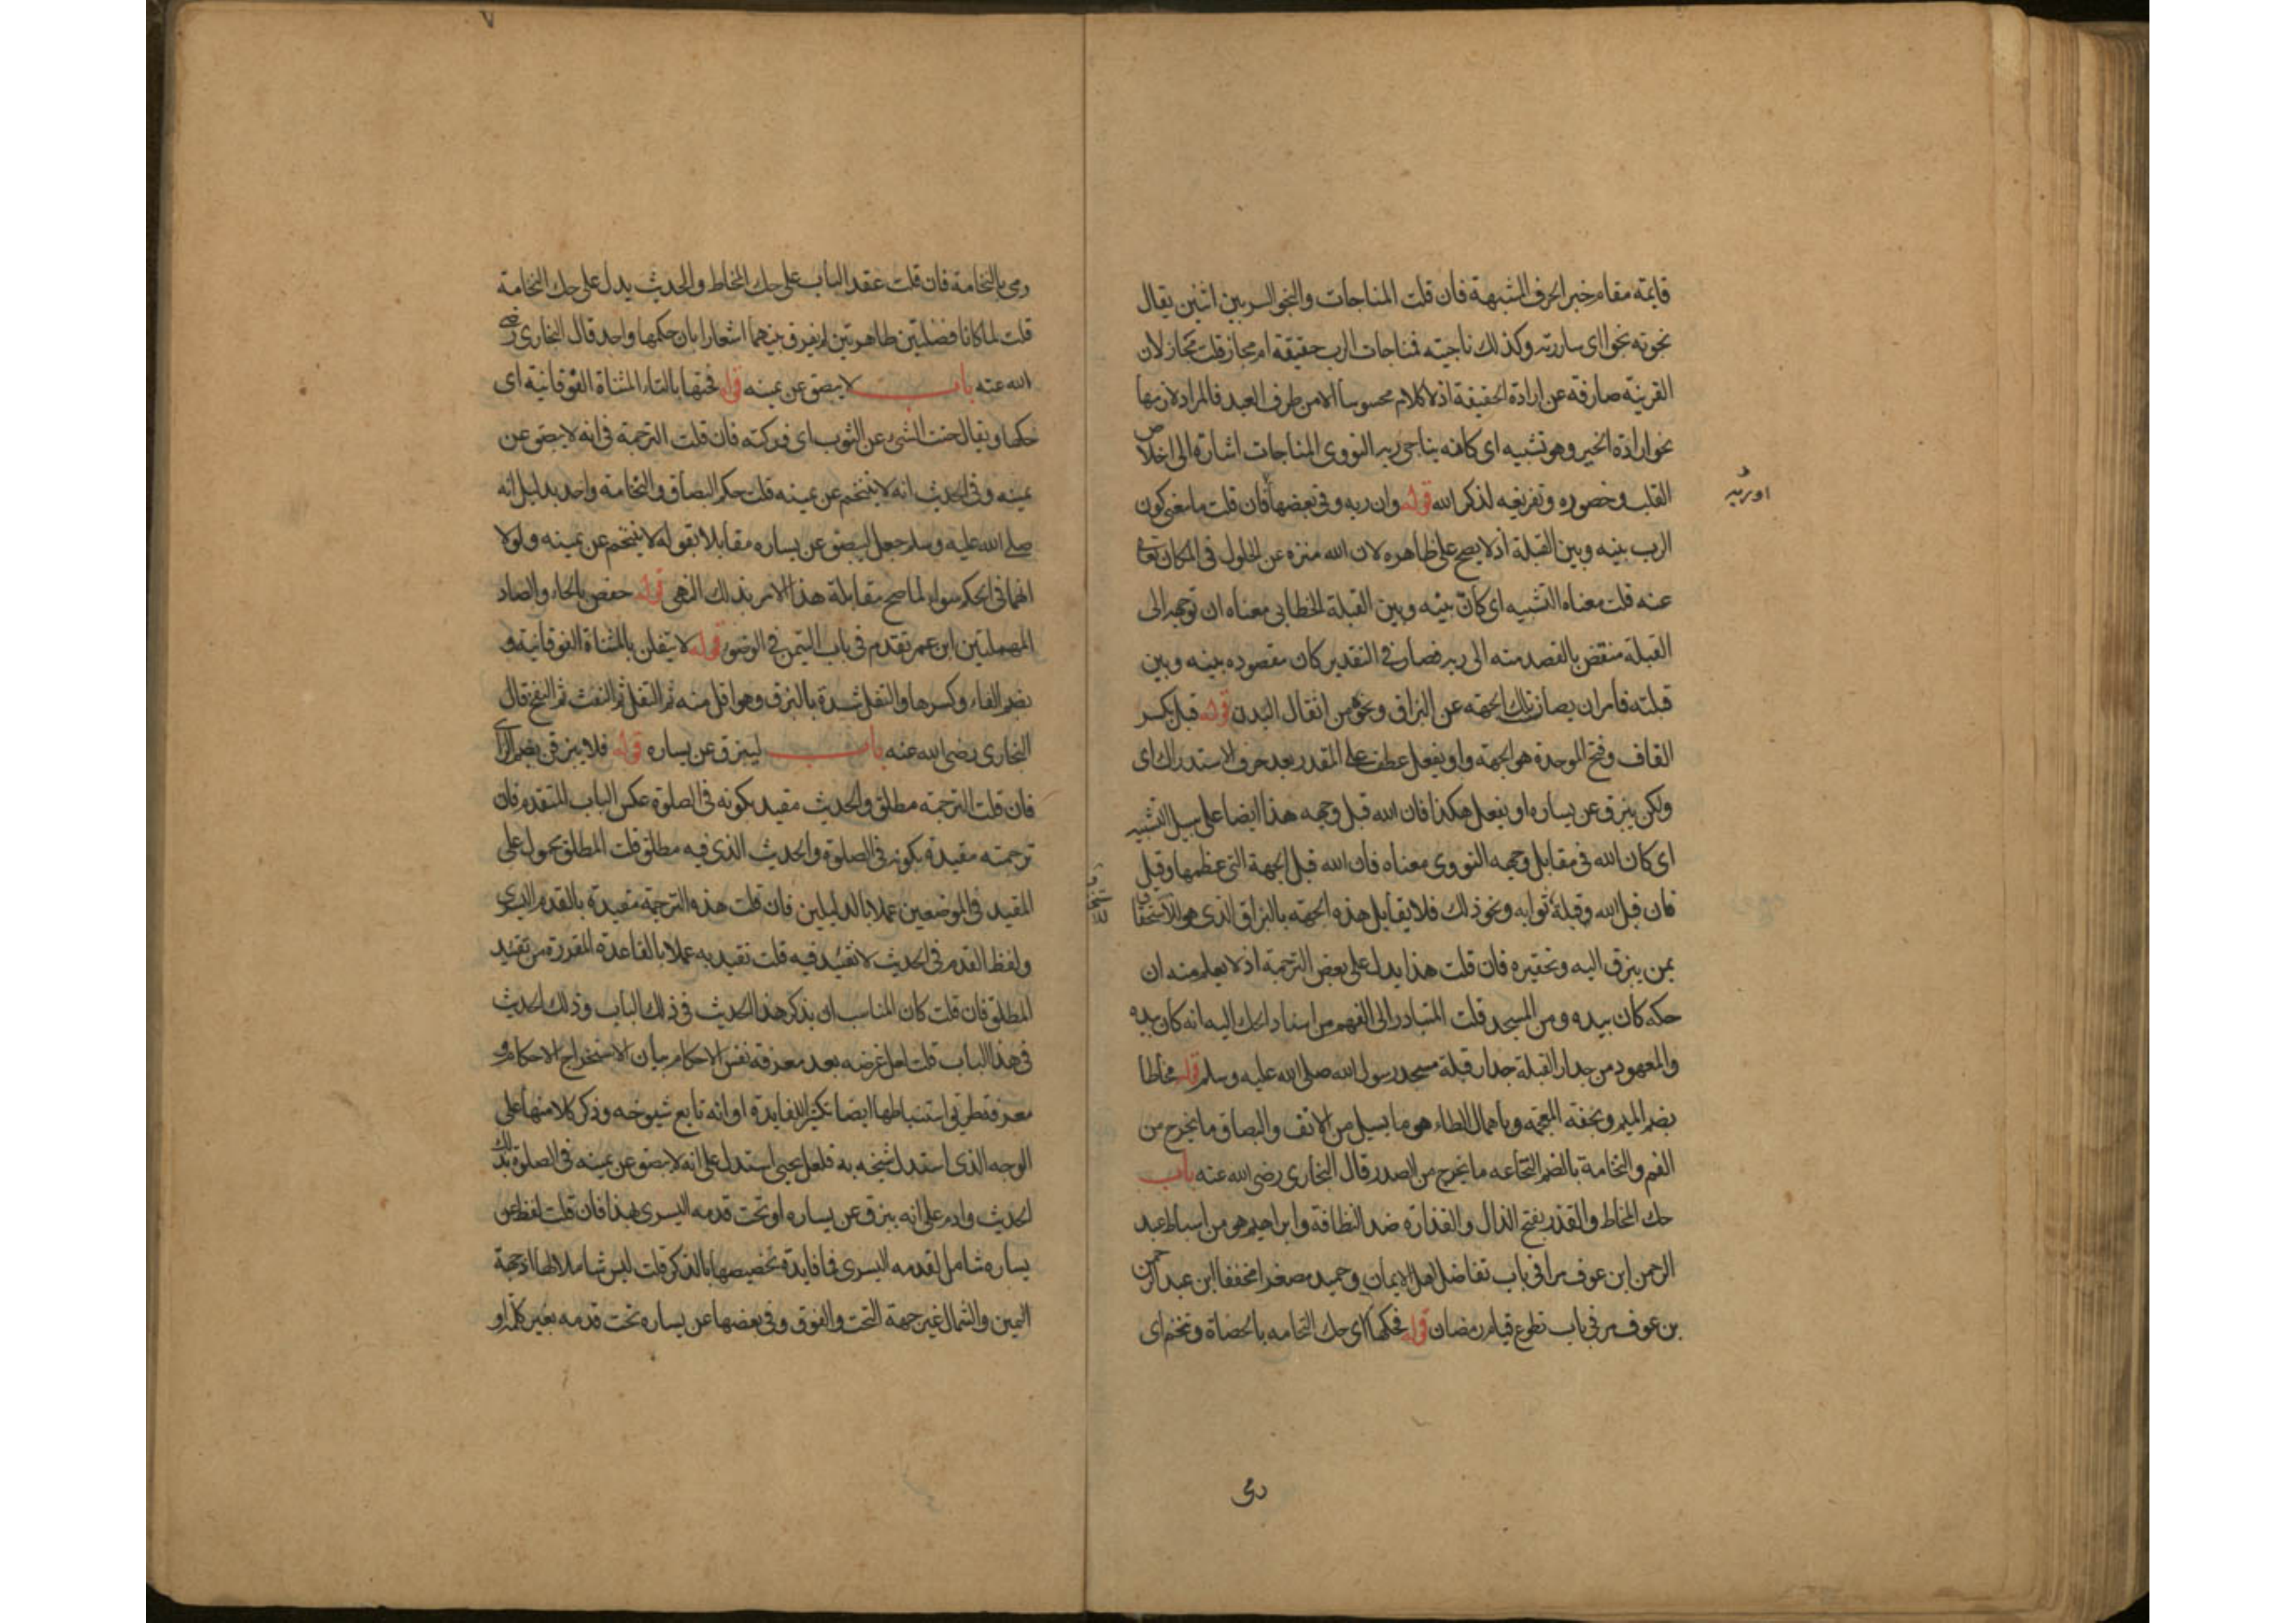 قايمة مقام خبر الحرف المشبهة فان قلت المناجات والنجو السر بين اثنين يقال
نجوته نجوا اى ساررته وكذلك ناجيته فمناجات الرب حقيقة ام مجاز قلت مجاز لان
القرينة صارفة عن ارادة الحقيقة اذ لا كلام محسوسا الا من طرف العبد فالمراد لازمها
نحو ارادة الخير وهو تشبيه اى كانه يناجى ربه النووى المناجات اشارة الى اخلاص
القلب وحضوره وتفريغه لذكر الله قوله وان ربه وفى بعضها فان قلت ما معنى كون
او ربه
الرب بينه وبين القبلة اذ لا يصح على ظاهره لان الله منزه عن الحلول فى المكان تعالى
عنه قلت معناه التشبيه اى كان بينه وبين القبلة الخطابى معناه ان توجهه الى
القبلة منقض بالقصد منه الى ربه فصار فى التقدير كان مقصوده بينه وبين
قبلته فامر ان يصان تلك الجهة عن البزاق ونحوه من اثقال البدن قوله قبل بكسر
القاف وفتح الموحدة هو الجهة واو يفعل عطف على المقدر بعد حرف الاستدراك اى
ولكن يبزق عن يساره او يفعل هكذا فان الله قبل وجهه هذا ايضا على سبيل التشبيه
اى كان الله فى مقابل وجهه النووى معناه فان الله قبل الجهة التى عظمها وقيل
فان قبل الله وقبلة ثوابه ونحو ذلك فلا يقابل هذه الجهة بالبزاق الذى هو للاستخفاف
بمن يبزق اليه وتحقيره فان قلت هذا يدل على بعض الترجمة اذ لا يعلم منه ان
حكه كان بيده ومن المسجد قلت المتبادر الى الفهم من اسناد الحك اليه انه كان بيده
والمعهود من جدار القبلة جدار قبلة مسجد رسول الله صلى الله عليه وسلم قوله مخاطا
بضم الميم وبخفة المعجمة وباهمال الطاء هو ما يسيل من الانف والبصاق ما يخرج من
الفم والنخامة بالضم النخاعه ما يخرج من الصدر قال البخارى رضى الله عنه باب
حك المخاط والقذر بفتح الذال والقذارة ضد النظافة وابراهيم هو من اسباط عبد
الرحمن ابن عوف مر فى باب تفاضل اهل الايمان وحميد مصغرا مخففا ابن عبد الرحمن
بن عوف مر فى باب تطوع قيام رمضان قوله فحكها اى حك النخامه بالحصاة وتنخم اى
رمى
رمى بالنخامة فان قلت عقد الباب على حك المخاط والحديث يدل على حك النخامة
قلت لما كانا فضلتين طاهرتين لم يفرق بينهما اشعارا بان حكمها واحد قال البخارى رضى
الله عنه باب لا يبصق عن يمينه قوله فحتها بالتاء المثناة الفوقانية اى
حكها ويقال حتت الشىء عن الثوب اى فركته فان قلت الترجمة فى انه لا يبصق عن
يمينه وفى الحديث انه لا يتنخم عن يمينه قلت حكم البصاق والنخامة واحد بدليل انه
صلى الله عليه وسلم جعل ليبصق عن يساره مقابلا بقوله لا يتنخم عن يمينه ولولا
انهما فى الحكم سواء لما صح مقابلة هذا الامر بذلك النهى قوله حفص بالحاء والصاد
المهملتين ابن عمر تقدم فى باب التيمن فى الوضوء قوله لا يتفلن بالمثناة الفوقانية و
بضم الفاء وكسرها والتفل شدة بالبزق وهو اقل منه ثم التفل ثم النفث ثم النفخ قال
البخارى رضى الله عنه باب ليبزق عن يساره قوله فلا يبزقن بضم الزاى
فان قلت الترجمة مطلق والحديث مقيد بكونه فى الصلوة عكس الباب المتقدم فان
ترجمته مقيدة بكونه فى الصلوة والحديث الذى فيه مطلق قلت المطلق محمول على
المقيد فى الموضعين عملا بالدليلين فان قلت هذه الترجمة مقيدة بالقدم اليسرى
ولفظ القدم فى الحديث لا تقييد فيه قلت تقيد به عملا بالقاعدة المقررة من تقييد
المطلق فان قلت كان المناسب ان يذكر هذا الحديث فى ذلك الباب وذلك الحديث
فى هذا الباب قلت لعل غرضه بعد معرفة نفس الاحكام بيان الاستخراج الاحكام و
معرفة طريق استنباطها ايضا تكثيرا للفايدة او انه تابع شيوخه وذكر كلا منها على
الوجه الذى استدل شيخه به فلعل يحيى استدل على انه لا يبصق عن يمينه فى الصلوة بذلك
الحديث وادم على انه يبزق عن يساره او تحت قدمه اليسرى بهذا فان قلت لفظ عن
يساره شامل لقدمه اليسرى فما فايدة تخصيصها بالذكر قلت ليس شاملا لها اذ جهة
اليمين والشمال غير جهة التحت والفوق وفى بعضها عن يساره تحت قدمه بغير كلمة او